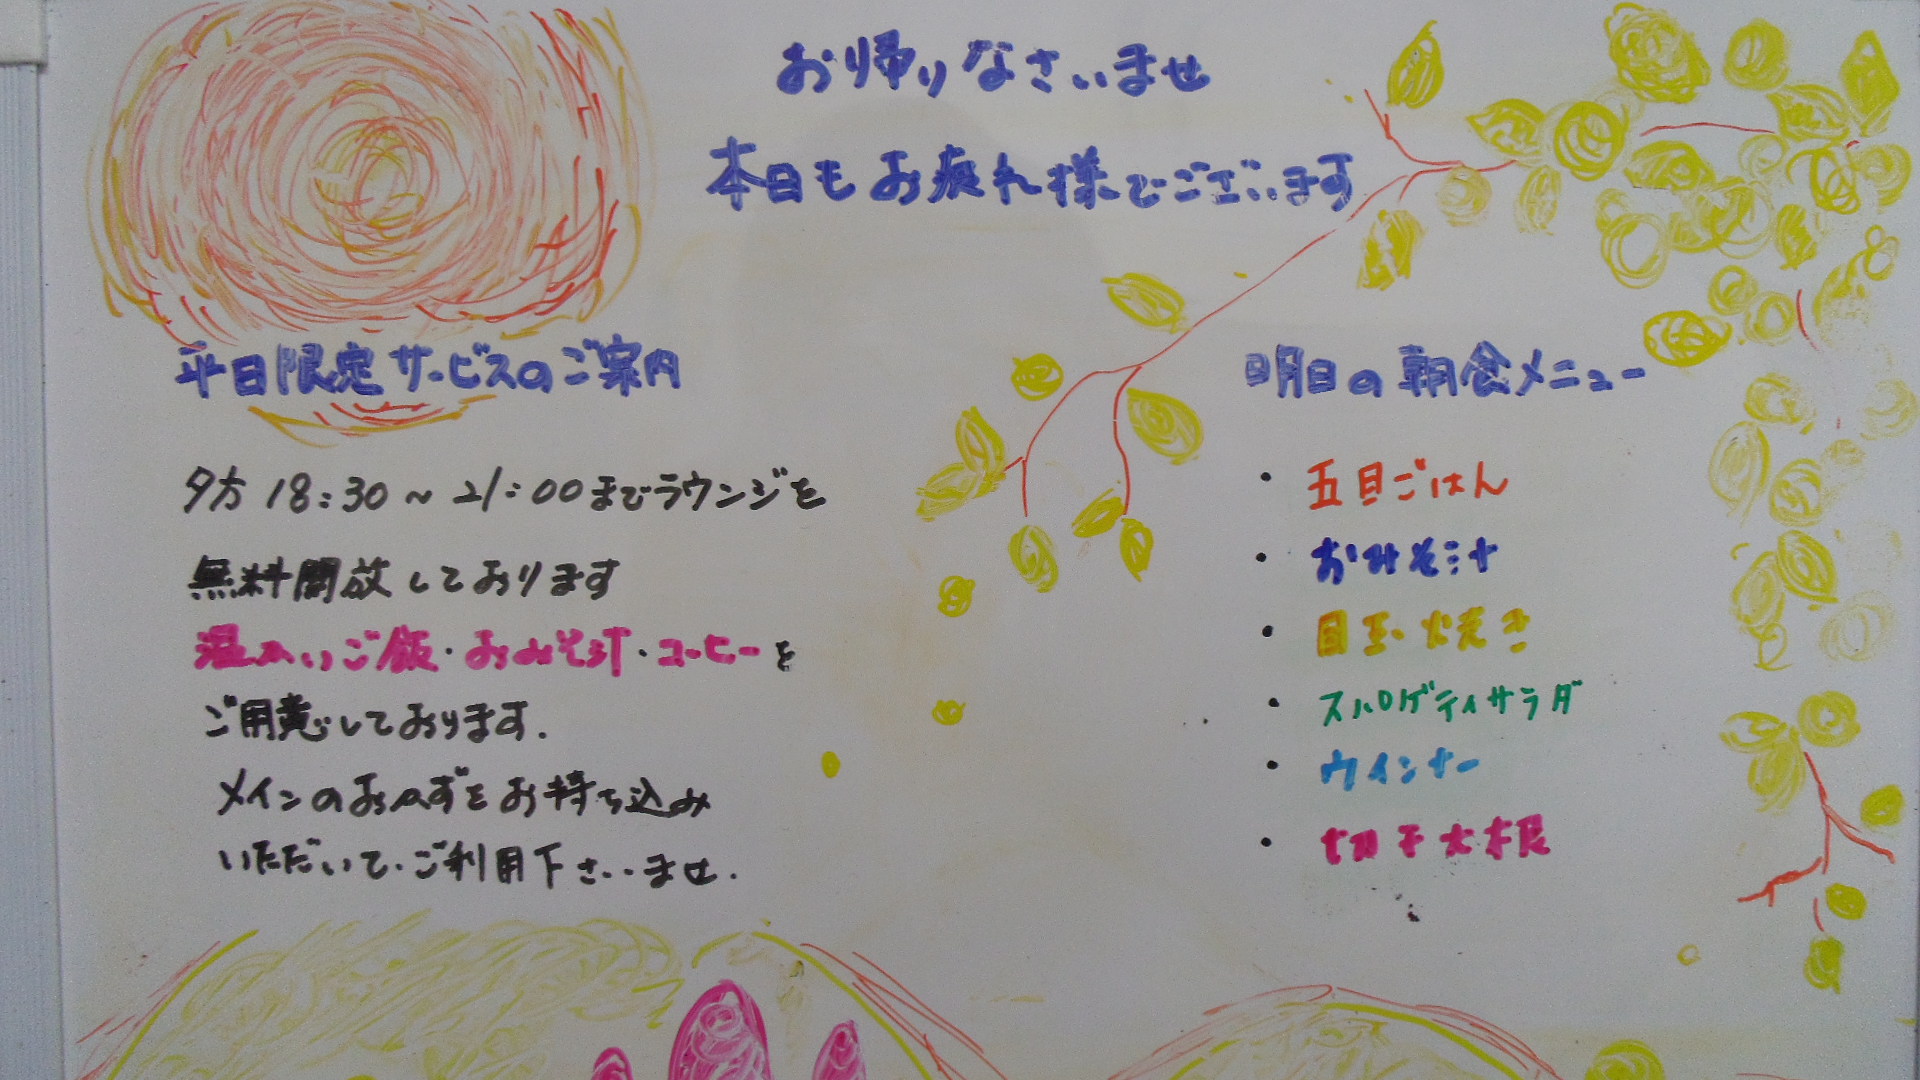 お帰りなさいませ
本日もお疲れ様でございます
平日限定サービスのご案内
夕方18:30~21:00までラウンジを
無料開放しております
温かいご飯・おみそ汁・コーヒーを
ご用意しております.
メインのおかずをお持ち込み
いただいて、ご利用下さいませ.
明日の朝食メニュー
・五目ごはん
・おみそ汁
・目玉焼き
・スパゲティサラダ
・ウインナー
・切干大根